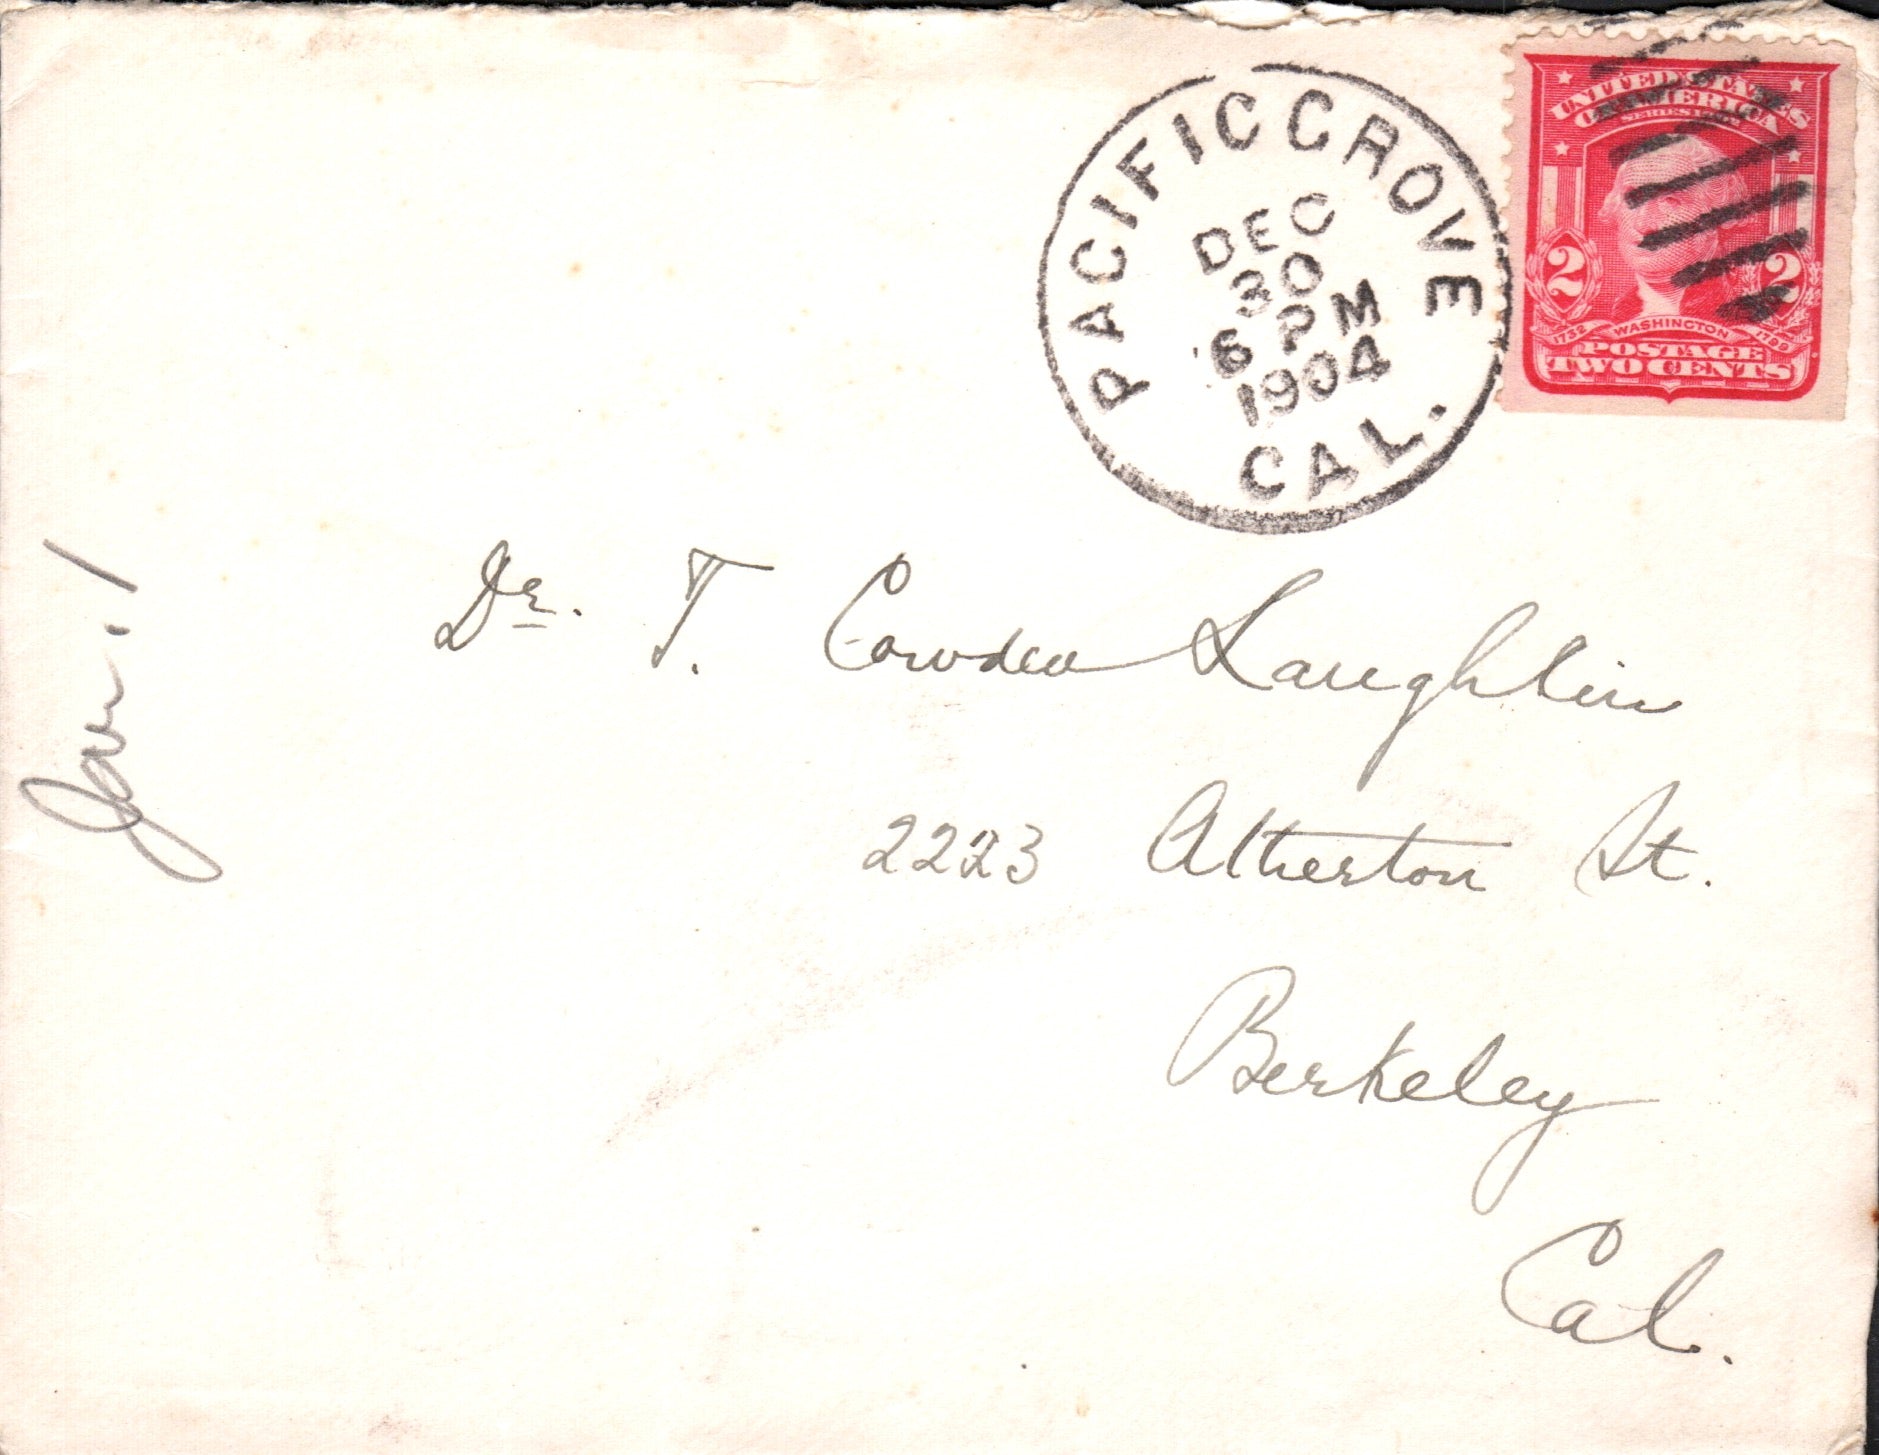 PACIFIC GROVE
DEC
30
6 PM
1904
CAL.
UNITED STATES
OF AMERICA
2 2
1732 WASHINGTON 1799
POSTAGE
TWO CENTS
Jan. 1
Dr. T. Cowden Laughlin
2223 Atherton St.
Berkeley
Cal.